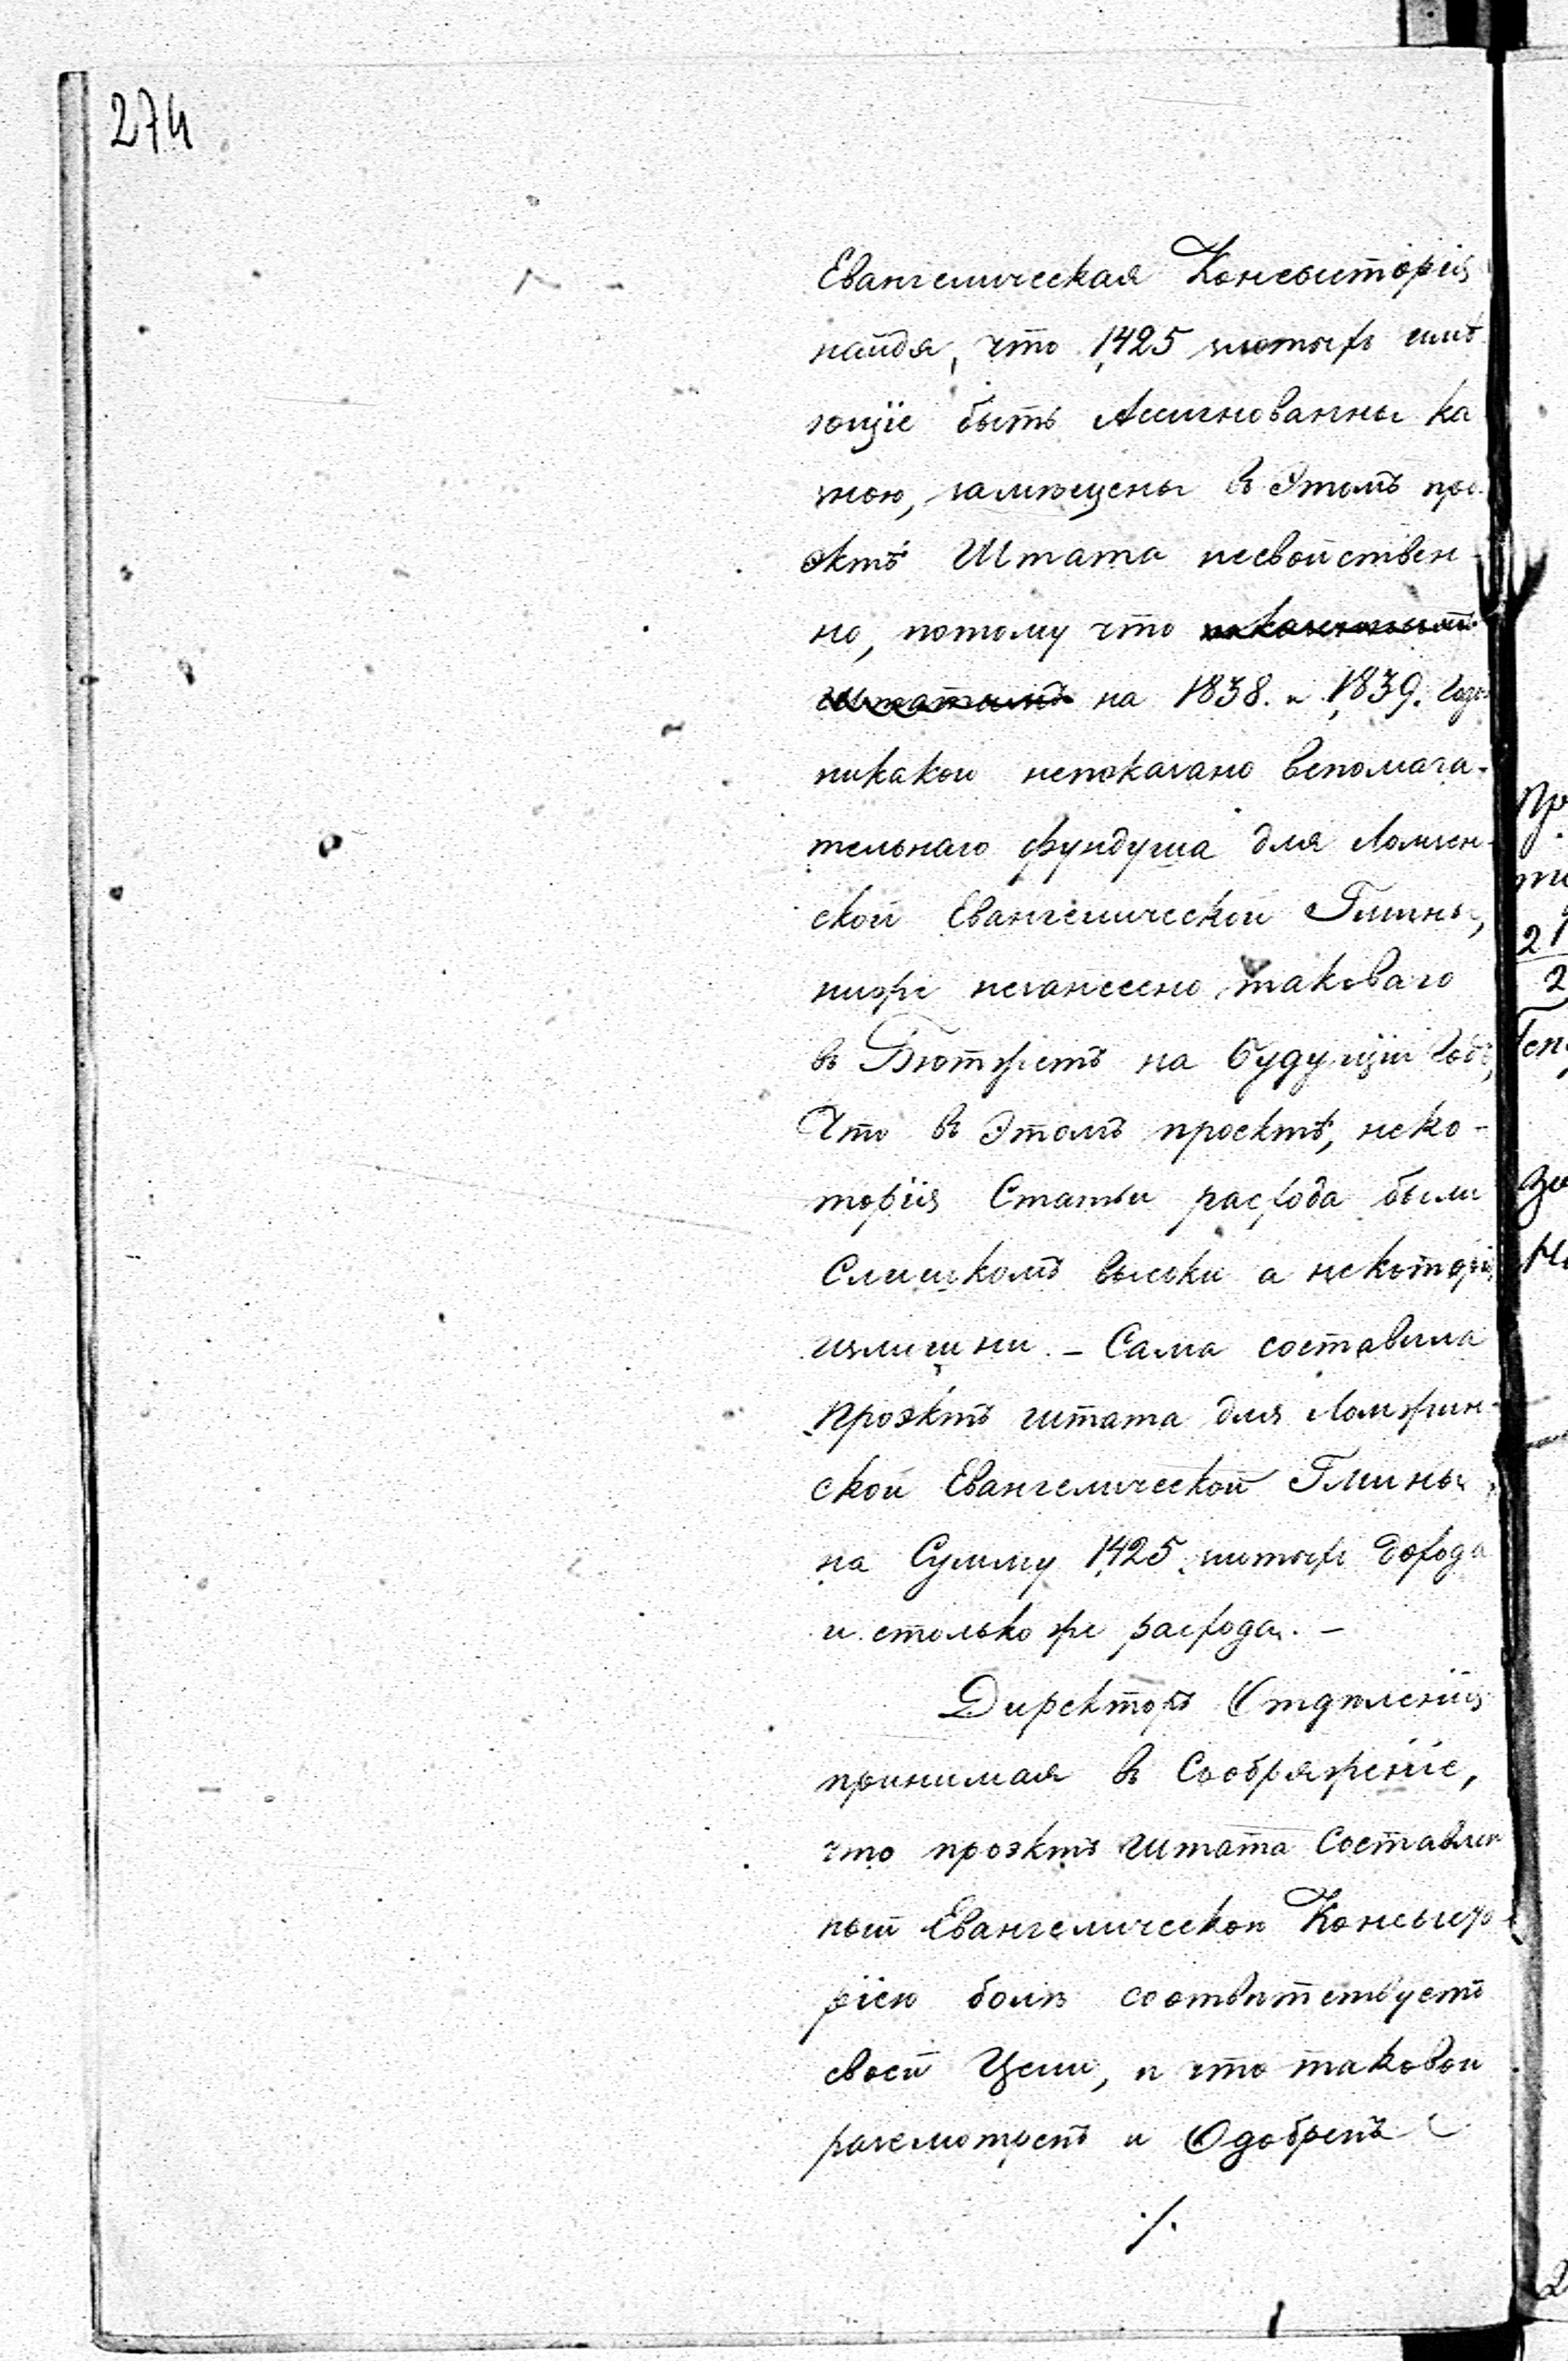 274
Евангелическая Консысторія
найдя, что 1425 злотыхъ имѣ
ющіе быть Ассигнованны ка
зною, замѣщены въ Этомъ про-
эктѣ Штата несвойствен-
но, потому что
на 1838. и 1839. Года
никакои непоказано вспомага-
тельнаго фундуша для Ломжен-
ской Евангелической Гмины,
ниже незанесено таковаго
въ Бютжетъ на будущіи Годъ,
Что въ Этомъ проектѣ, неко-
торіія Статьи расхода были
Слишкомъ высоки а некоторіи
излишни. – Сама составила
Проэктъ штата для Ломжин-
ской Евангелической Гмины
на Сумму 1425 злотыхъ дохода
и столько же расхода. –
Директоръ Отдѣленія
принимая въ Соображеніе,
что проэктъ Штата Составлен
ный Евангелическои Консысто-
ріею болѣ соотвѣтствуетъ
своей Цели, и что таковои
разсмотренъ и Одобренъ
./.